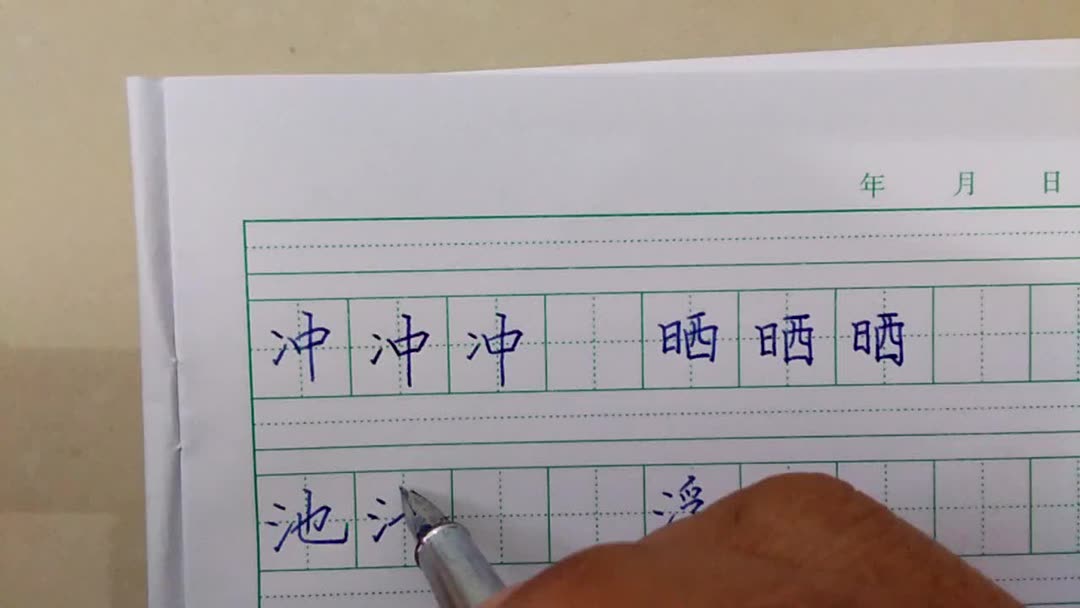 年 月 日
冲 冲 冲 晒 晒 晒
池 浮